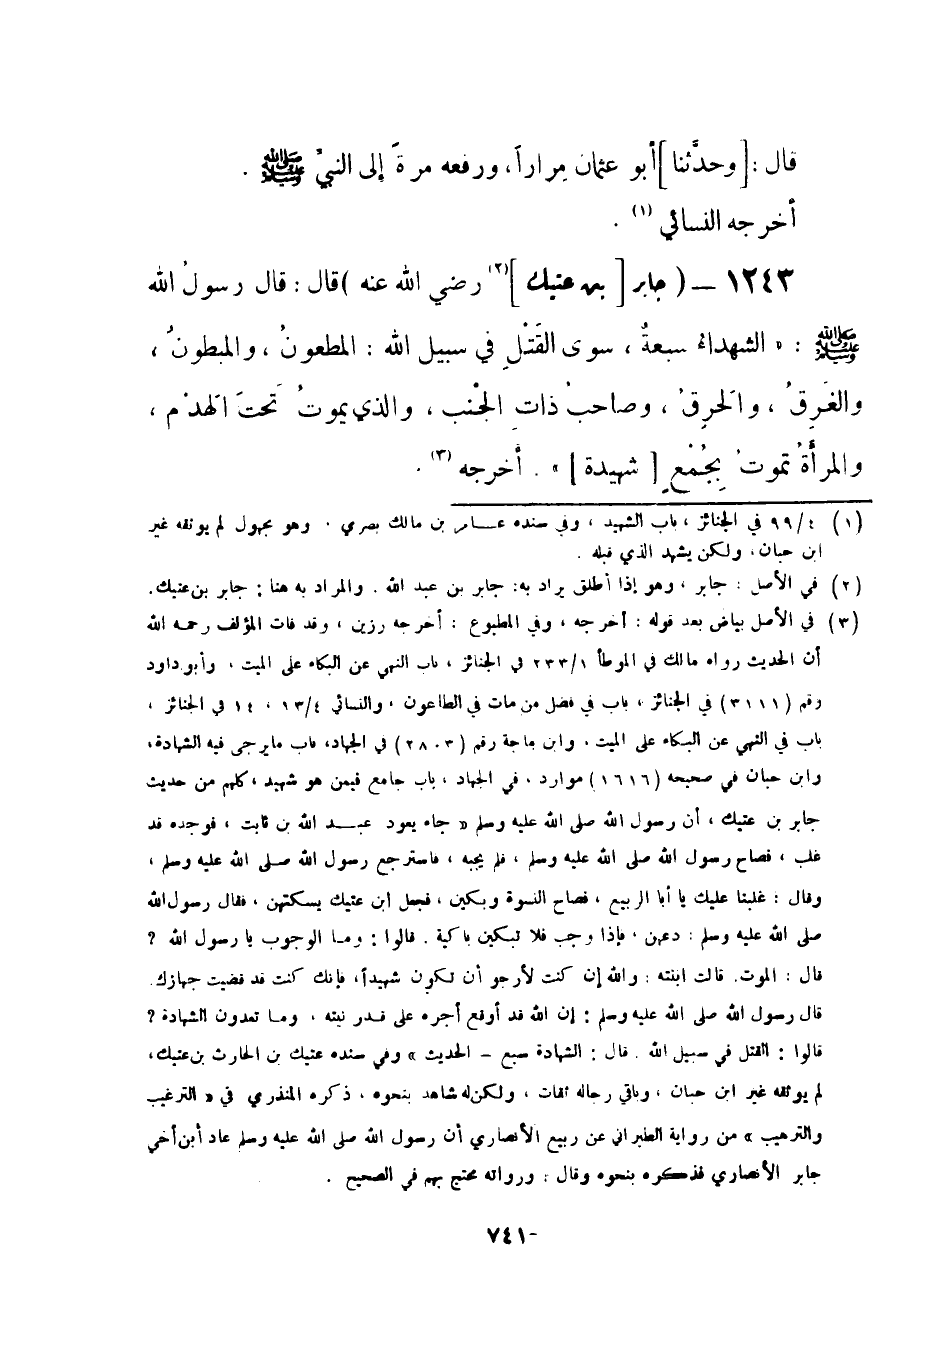 قال : [ وحدَّثنا ] أبو عثمان مِراراً ، ورفعه مرةً إلى النبيِّ ﷺ .
أخرجه النسائي (١) .
١٢٤٣ – ( جابر [ بن عتيك ] (٢) رضي الله عنه ) قال : قال رسولُ الله
ﷺ : « الشهداءُ سبعةٌ ، سوى القَتْلِ في سبيل الله : المطعونُ ، والمبطونُ ،
والغَرِقُ ، والحَرِقُ ، وصاحبُ ذاتِ الجَنْب ، والذي يموتُ تَحتَ الهدْم ،
والمرأةُ تموتُ بِجُمْعٍ [ شهيدة ] » . أخرجه (٣) .
(١) ٤/ ٩٩ في الجنائز ، باب الشهيد ، وفي سنده عامر بن مالك بصري . وهو مجهول لم يوثقه غير
ابن حبان ، ولكن يشهد الذي قبله .
(٢) في الأصل : جابر ، وهو إذا أطلق يراد به : جابر بن عبد الله . والمراد به هنا : جابر بن عتيك .
(٣) في الأصل بياض بعد قوله : أخرجه ، وفي المطبوع : أخرجه رزين ، وقد فات المؤلف رحمه الله
أن الحديث رواه مالك في الموطأ ١/ ٢٣٣ في الجنائز ، باب النهي عن البكاء على الميت ، وأبو داود
رقم ( ٣١١١ ) في الجنائز ، باب في فضل من مات في الطاعون ، والنسائي ٤/ ١٣ ، ١٤ في الجنائز ،
باب في النهي عن البكاء على الميت ، وابن ماجة رقم ( ٢٨٠٣ ) في الجهاد ، باب ما يرجى فيه الشهادة ،
وابن حبان في صحيحه ( ١٦١٦ ) موارد ، في الجهاد ، باب جامع فيمن هو شهيد ، كلهم من حديث
جابر بن عتيك ، أن رسول الله صلى الله عليه وسلم « جاء يعود عبد الله بن ثابت ، فوجده قد
غلب ، فصاح رسول الله صلى الله عليه وسلم ، فلم يجبه ، فاسترجع رسول الله صلى الله عليه وسلم ،
وقال : غلبنا عليك يا أبا الربيع ، فصاح النسوة وبكين ، فجعل ابن عتيك يسكتهن ، فقال رسول الله
صلى الله عليه وسلم : دعهن ، فإذا وجب فلا تبكين باكية . قالوا : وما الوجوب يا رسول الله ؟
قال : الموت . قالت ابنته : والله إن كنت لأرجو أن تكون شهيداً ، فإنك كنت قد قضيت جهازك .
قال رسول الله صلى الله عليه وسلم : إن الله قد أوقع أجره على قدر نيته ، وما تعدون الشهادة ؟
قالوا : القتل في سبيل الله . قال : الشهادة سبع – الحديث » وفي سنده عتيك بن الحارث بن عتيك ،
لم يوثقه غير ابن حبان ، وباقي رجاله ثقات ، ولكن له شاهد بنحوه ، ذكره المنذري في « الترغيب
والترهيب » من رواية الطبراني عن ربيع الأنصاري أن رسول الله صلى الله عليه وسلم عاد ابن أخي
جابر الأنصاري فذكره بنحوه وقال : ورواته محتج بهم في الصحيح .
-٧٤١